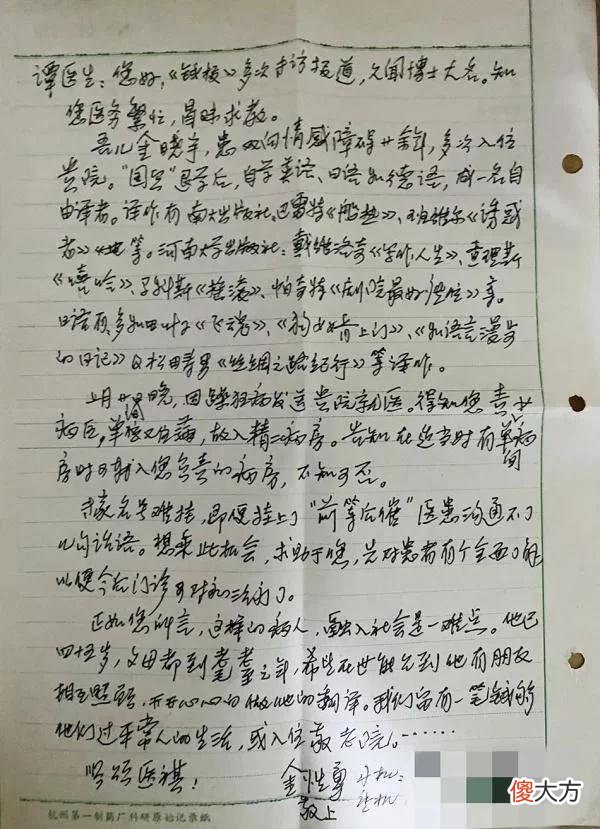 谭医生：您好，《钱报》多次专访报道，久闻博士大名。知
您医务繁忙，冒昧求教。
吾儿金晓宇，患双向情感障碍廿余年，多次入住
贵院。退学后，自学英语、日语和德语，成一名自
由译者。译作有南大出版社：巴雷特《船热》、班维尔《诱惑
者》等。河南大学出版社：安德烈·戴维洛奇《写作人生》、查理斯
《嘻哈》、《摇滚》、帕奇特《剧院最好的座位》等。
日语有多和田叶子《飞魂》、《狗女婿上门》、《和语言漫步
的日记》及松田寿男《丝绸之路纪行》等译作。
上月廿日晚，因躁狂病发送贵院就医。得知您责
病区，单间又住满，故入精二病房。告知在适当时有单间病
房时可转入您负责的病房，不知可否。
专家名号难挂，即便挂上了“前等后催”医患沟通不了
几句话语。想乘此机会，求助于您，先对患者有个全面了解
以便今后门诊可对和治疗了。
正如您所言，这样的病人，融入社会是一难点。他已
四十五岁，父母都到耄耋之年，希望在世能见到他有朋友
相互照顾，开开心心的做他的翻译。我们留有一笔钱能
他们过平常人的生活，或入住敬老院。……
顺颂医祺！ 金性勇 手机：
敬上
杭州第一制药厂科研原始记录纸
傻大方